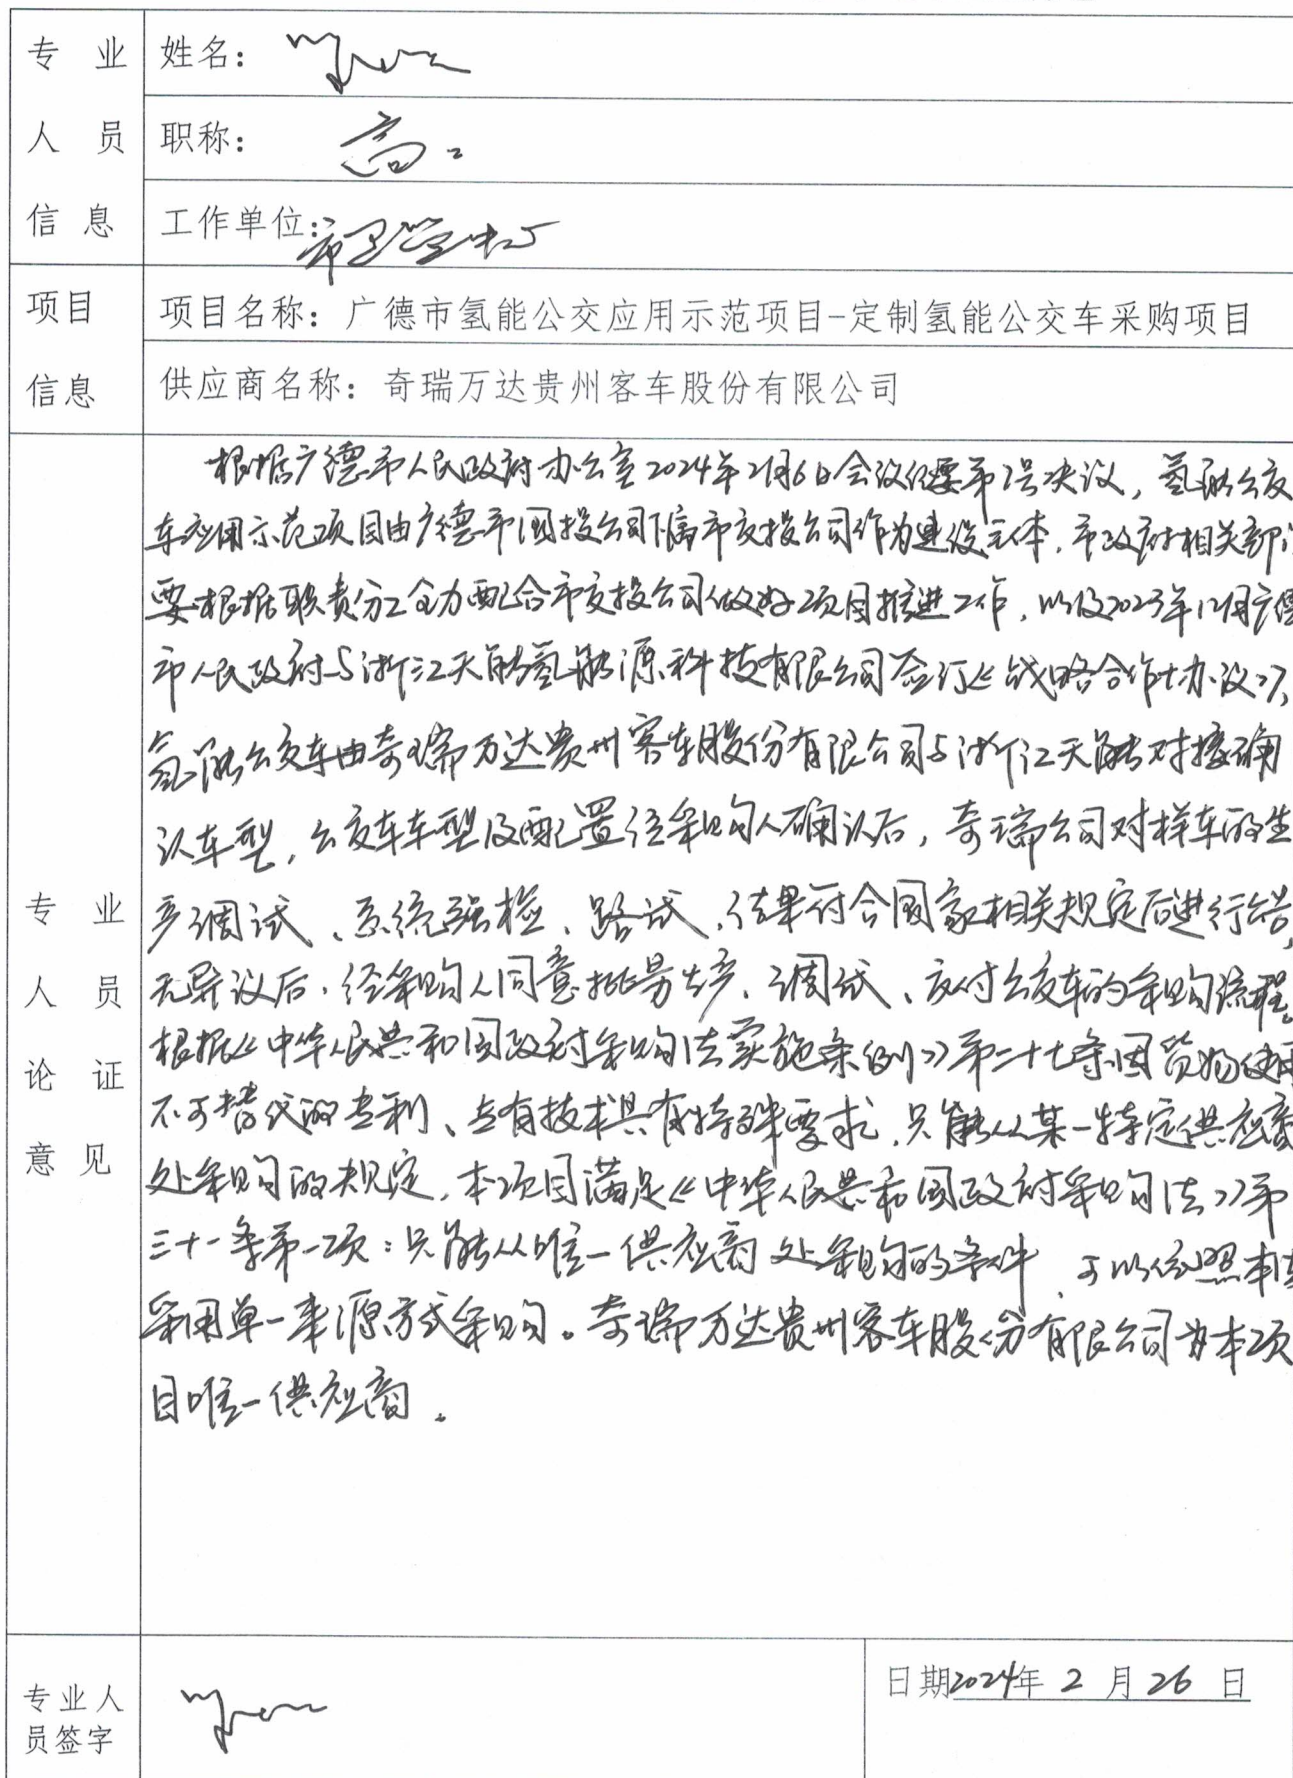 专业人员信息
姓名：
职称：高工
工作单位：
项目信息
项目名称：广德市氢能公交应用示范项目-定制氢能公交车采购项目
供应商名称：奇瑞万达贵州客车股份有限公司
专业人员论证意见
根据广德市人民政府办公室2024年2月6日会议纪要第2号决议，氢能公交
车应用示范项目由广德市国投公司下属市交投公司作为建设主体，市政府相关部门
要根据职责分工全力配合市交投公司做好项目推进工作，以及2023年12月广德
市人民政府与浙江天能氢能源科技有限公司签订《战略合作协议》，
氢能公交车由奇瑞万达贵州客车股份有限公司与浙江天能对接确
认车型，公交车车型及配置经采购人确认后，奇瑞公司对样车的生
产调试、系统强检、路试、结果符合国家相关规定后进行公告，
无异议后，经采购人同意批量生产、调试、交付公交车的采购流程。
根据《中华人民共和国政府采购法实施条例》第二十七条因货物使用
不可替代的专利、专有技术具有特殊要求，只能从某一特定供应商
处采购的规定，本项目满足《中华人民共和国政府采购法》第
三十一条第一项：只能从唯一供应商处采购的条件，可以依照本法
采用单一来源方式采购。奇瑞万达贵州客车股份有限公司为本项
目唯一供应商。
专业人员签字
日期2024年2月26日